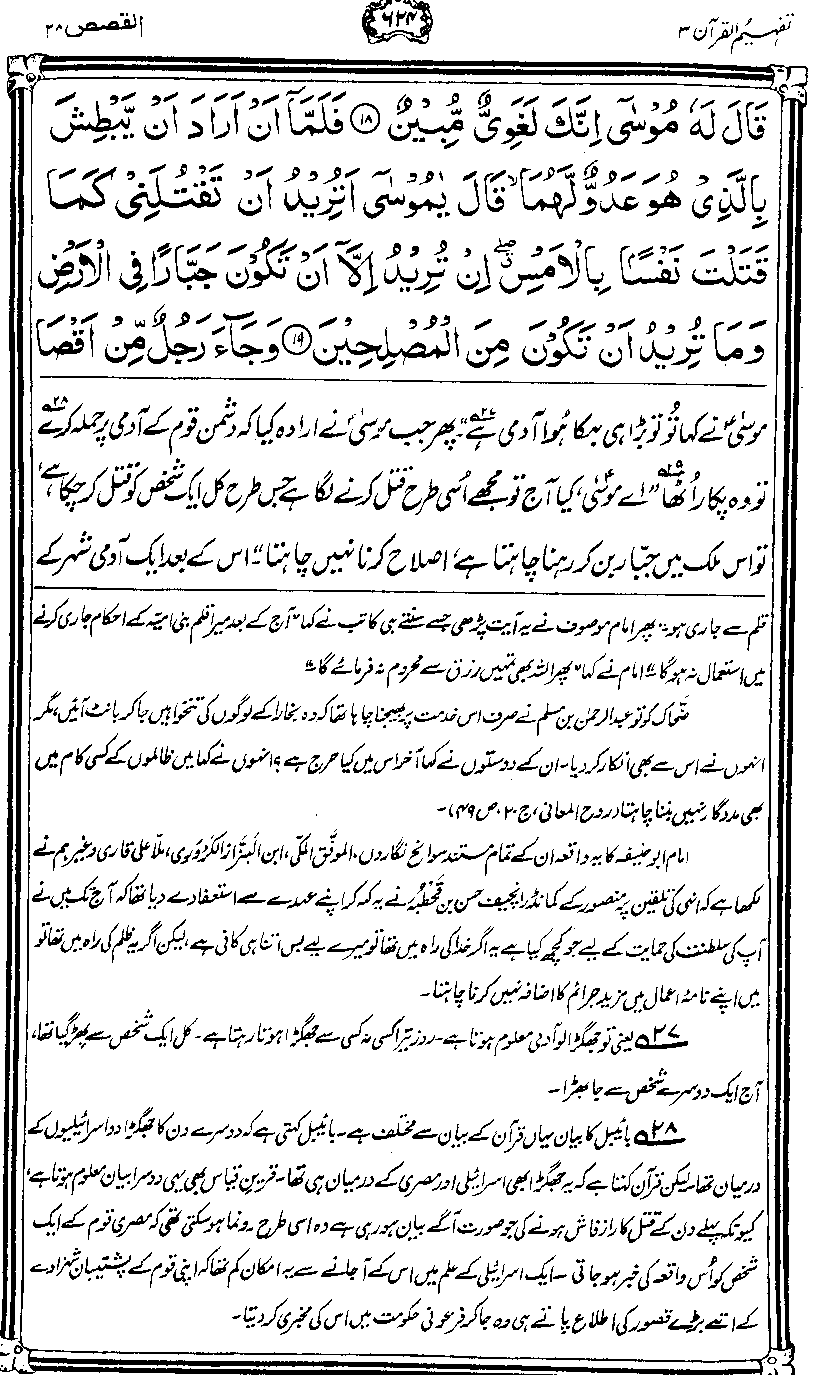 تفہیم القرآن ۳
۶۲۴
القصص ۲۸
قَالَ لَهٗ مُوْسٰٓى اِنَّكَ لَغَوِیٌّ مُّبِیْنٌ ۝۱۸ فَلَمَّاۤ اَنْ اَرَادَ اَنْ یَّبْطِشَ
بِالَّذِیْ هُوَ عَدُوٌّ لَّهُمَا ۙ قَالَ یٰمُوْسٰٓى اَتُرِیْدُ اَنْ تَقْتُلَنِیْ كَمَا
قَتَلْتَ نَفْسًۢا بِالْاَمْسِ ۖ اِنْ تُرِیْدُ اِلَّاۤ اَنْ تَكُوْنَ جَبَّارًا فِی الْاَرْضِ
وَمَا تُرِیْدُ اَنْ تَكُوْنَ مِنَ الْمُصْلِحِیْنَ ۝۱۹ وَجَآءَ رَجُلٌ مِّنْ اَقْصَا
موسٰیؑ نے کہا ”تُو تو بڑا ہی بہکا ہُوا آدمی ہے۲۷“۔ پھر جب موسٰیؑ نے ارادہ کیا کہ دشمن قوم کے آدمی پر حملہ کرے۲۸
تو وہ پکار اُٹھا۲۹ ”اے موسٰیؑ، کیا آج تو مجھے اُسی طرح قتل کرنے لگا ہے جس طرح کل ایک شخص کو قتل کر چکا ہے،
تو اس ملک میں جبّار بن کر رہنا چاہتا ہے، اصلاح کرنا نہیں چاہتا“۔ اس کے بعد ایک آدمی شہر کے
قلم سے جاری ہو۔“ پھر امام موصوف نے یہ آیت پڑھی جسے سنتے ہی کاتب نے کہا ”آج کے بعد میرا قلم بنی امیّہ کے احکام جاری کرنے
میں استعمال نہ ہوگا۔“ امام نے کہا ”پھر اللہ بھی تمہیں رزق سے محروم نہ فرمائے گا۔“
ضحّاک کو تو عبدالرحمٰن بن مسلم نے صرف اس خدمت پر بھیجنا چاہا تھا کہ وہ بخارا کے لوگوں کی تنخواہیں جا کر بانٹ آئیں، مگر
انہوں نے اس سے بھی انکار کر دیا۔ ان کے دوستوں نے کہا آخر اس میں کیا حرج ہے؟ انہوں نے کہا میں ظالموں کے کسی کام میں
بھی مددگار نہیں بننا چاہتا (روح المعانی، ج ۲۰، ص ۴۹)۔
امام ابو حنیفہ کا یہ واقعہ ان کے تمام مستند سوانح نگاروں، الموفّق المکی، ابن البَزّاز الکَرْوَرِی، ملّا علی قاری وغیرہم نے
لکھا ہے کہ انہی کی تلقین پر منصور کے کمانڈر انچیف حسن بن قَحْطَبہ نے یہ کہہ کر اپنے عہدے سے استعفا دے دیا تھا کہ آج تک میں نے
آپ کی سلطنت کی حمایت کے لیے جو کچھ کیا ہے یہ اگر خدا کی راہ میں تھا تو میرے لیے بس اتنا ہی کافی ہے، لیکن اگر یہ ظلم کی راہ میں تھا تو
میں اپنے نامۂ اعمال میں مزید جرائم کا اضافہ نہیں کرنا چاہتا۔
۲۷ یعنی تو جھگڑالو آدمی معلوم ہوتا ہے۔ روز تیرا کسی نہ کسی سے جھگڑا ہوتا رہتا ہے۔ کل ایک شخص سے بھڑ گیا تھا،
آج ایک دوسرے شخص سے جا بھڑا۔
۲۸ بائیبل کا بیان یہاں قرآن کے بیان سے مختلف ہے۔ بائیبل کہتی ہے کہ دوسرے دن کا جھگڑا دو اسرائیلیوں کے
درمیان تھا، لیکن قرآن کہتا ہے کہ یہ جھگڑا بھی اسرائیلی اور مصری کے درمیان ہی تھا۔ قرینِ قیاس بھی یہی دوسرا بیان معلوم ہوتا ہے،
کیونکہ پہلے دن کے قتل کا راز فاش ہونے کی جو صورت آگے بیان ہو رہی ہے وہ اسی طرح رونما ہو سکتی تھی کہ مصری قوم کے ایک
شخص کو اُس واقعہ کی خبر ہو جاتی۔ ایک اسرائیلی کے علم میں اس کے آ جانے سے یہ امکان کم تھا کہ اپنی قوم کے پشتیبان شہزادے
کے اتنے بڑے قصور کی اطلاع پاتے ہی وہ جا کر فرعونی حکومت میں اس کی مخبری کر دیتا۔